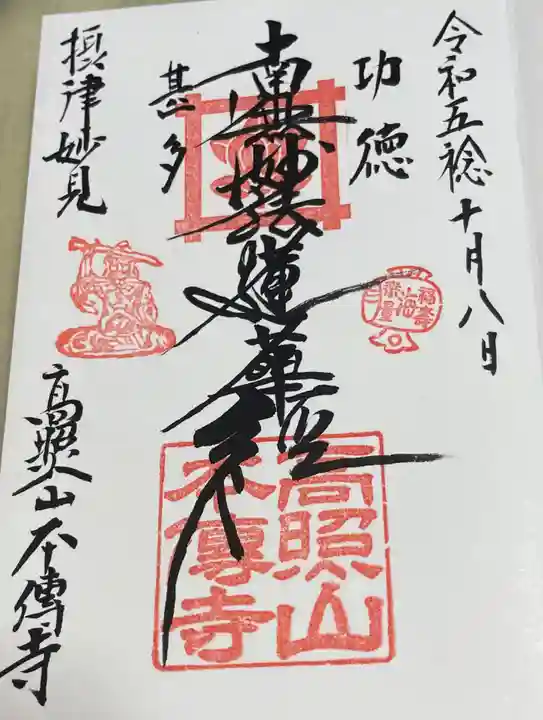 令和五稔十月八日
功德
南無妙法蓮華經
甚多
摂津妙見
高照山本傳寺
福壽
海
無量
高照山
本傳寺